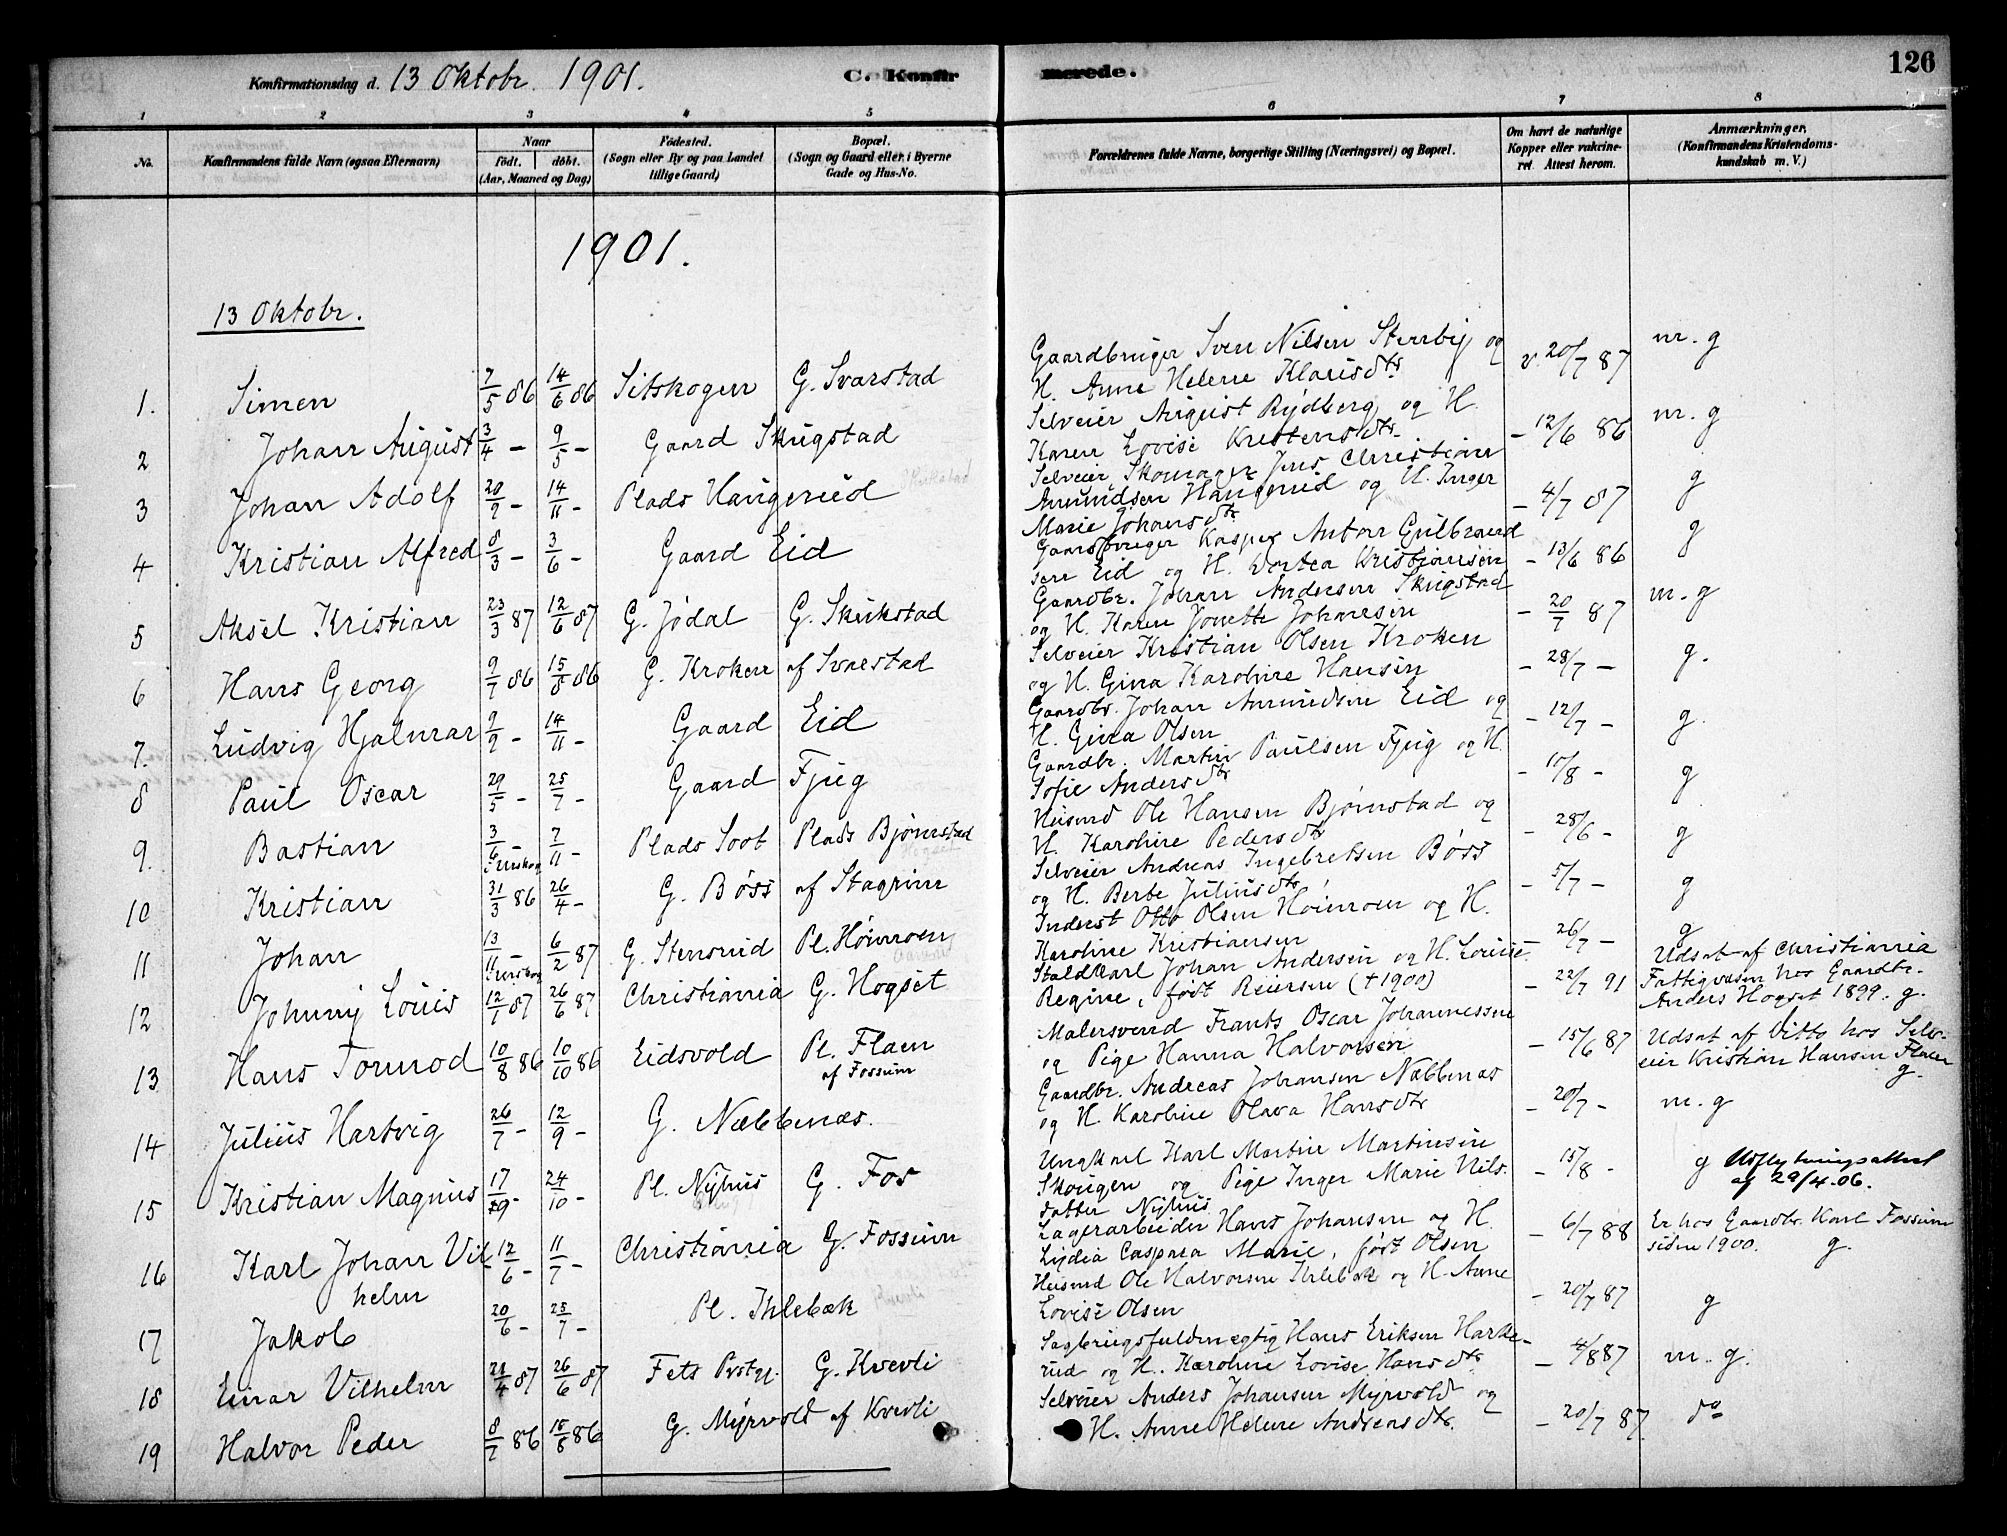 Konfirmationsdag d. 13 Oktobr. 1901.
C. Konfirmerede.
126
1 2 3 4 5 6 7 8
No.
Konfirmandens fulde Navn (ogsaa Efternavn)
Naar
födt. döbt.
(Aar, Maaned og Dag)
Födested.
(Sogn eller By og paa Landet
tillige Gaard)
Bopæl.
(Sogn og Gaard eller i Byerne
Gade og Hus-No.
Forældrenes fulde Navne, borgerlige Stilling (Næringsvei) og Bopæl.
Om havt de naturlige
Kopper eller vakcine-
ret. Attest herom.
Anmærkninger.
(Konfirmandens Kristendoms-
kundskab m. V.)
1901.
13 Oktobr.
1. Simen 7/5 86 14/6 86 Sitskogen G. Svarstad
Gaardbruger Sven Nilsen Stenby og
H. Anne Helene Klausdtr
v. 20/7 87 m. g
2 Johan August 3/4 – 9/5 – Gaard Skugstad
Selveier August Rydberg og H.
Karen Lovise Kristensdtr.
– 12/6 86 m. g
3 Johan Adolf 20/9 – 14/11 – Plads Haugerud
Selveier Skomager Jens Christian
Amundsen Haugerud og H. Inger
Marie Johansdtr
– 4/7 87 g
4 Kristian Alfred 8/3 – 3/6 – Gaard Eid
Gaardbruger Kasper Anton Gulbrand
sen Eid og H. Dortea Kristiansen
– 13/6 86 g
5 Aksel Kristian 23/3 87 12/6 87 G. Jödal G. Skukstad
Gaardbr. Johan Andersen Skugstad
og H. Karen Jonette Johanesen
– 20/7 87 m. g
6 Hans Georg 9/7 86 15/8 86 G. Kroken af Svarstad
Selveier Kristian Olsen Kroken
og H. Gina Karoline Hansen
– 28/7 – g.
7. Ludvig Hjalmar 9/9 – 14/11 – Gaard Eid
Gaardbr. Johan Amundsen Eid og
H. Gina Olsen
– 12/7 – g.
8 Paul Oscar 29/5 – 25/7 – Gaard Fjug
Gaardbr. Martin Paulsen Fjug og H.
Sofie Andersdtr
– 11/8 – g
9. Bastian 3/6 – 7/11 – Plads Soot Plads Bjørnstad
Husmd Ole Hansen Bjørnstad og
H. Karoline Pedersdtr
– 28/6 – g
10 Kristian 31/3 86 26/4 – G. Böss af Stagrim
Selveier Andreas Ingebretsen Böss
og H. Berte Juliusdtr
– 5/7 – g
11 Johan 13/11 – 6/2 87 G. Stensrud Pl. Höimoen
Inderst Otto Olsen Höimoen og H.
Karoline Kristiansen
26/7 – g
12 Johnny Louis 12/1 87 26/6 87 Christiania G. Hogset
Staldkarl Johan Andersen og H. Louise
Regine, født Reiersen (†1900)
– 22/7 91
Udsat af Christiania
Fattigvæsen hos Gaardbr.
Anders Hogset 1899. g.
13 Hans Tormod 10/8 86 10/10 86 Eidsvold Pl. Flaen
af Fossum
Malersvend Frants Oscar Johannessen
og Pige Hanna Halvorsen
– 15/6 87
Udsat af Vitto hos Selv-
eier Kristian Hansen Flaen
g.
14 Julius Hartvig 26/7 – 12/9 – G. Næbbenæs.
Gaardbr. Andreas Johansen Næbbenæs
og H. Karoline Olava Hansdtr
– 20/7 – m. g
15 Kristian Magnus 17/9 – 24/10 – Pl. Nyhus G. Fos
Ungkarl Karl Martin Martinsen
Skougen og Pige Inger Marie Nils
datter Nyhus
– 15/8 – g Udflytningsattest
af 29/4-06.
16 Karl Johan Vil-
helm 12/6 – 11/7 – Christiania G. Fossum
Lagerarbeider Hans Johansen og H.
Lydia Caspara Marie, født Olsen
– 6/7 88
Er hos Gaardbr. Karl Fossum
siden 1900. g.
17 Jakob 20/6 – 25/7 – Pl. Ihlebæk
Husmd Ole Halvorsen Ihlebæk og H. Anne
Lovise Olsen
– 20/7 87 g
18 Einar Vilhelm 21/4 87 26/6 87 Fets Prstgj. G. Kvevli
Sagbrugsfuldmægtig Hans Eriksen Harke-
rud og H. Karoline Lovise Hansdtr
– 4/8 87 m. g.
19 Halvor Peder 8/7 86 15/8 86 G. Myrvold af Kvevli
Selveier Anders Johansen Myrvold og
H. Anne Helene Andreasdtr.
– 20/7 87. do